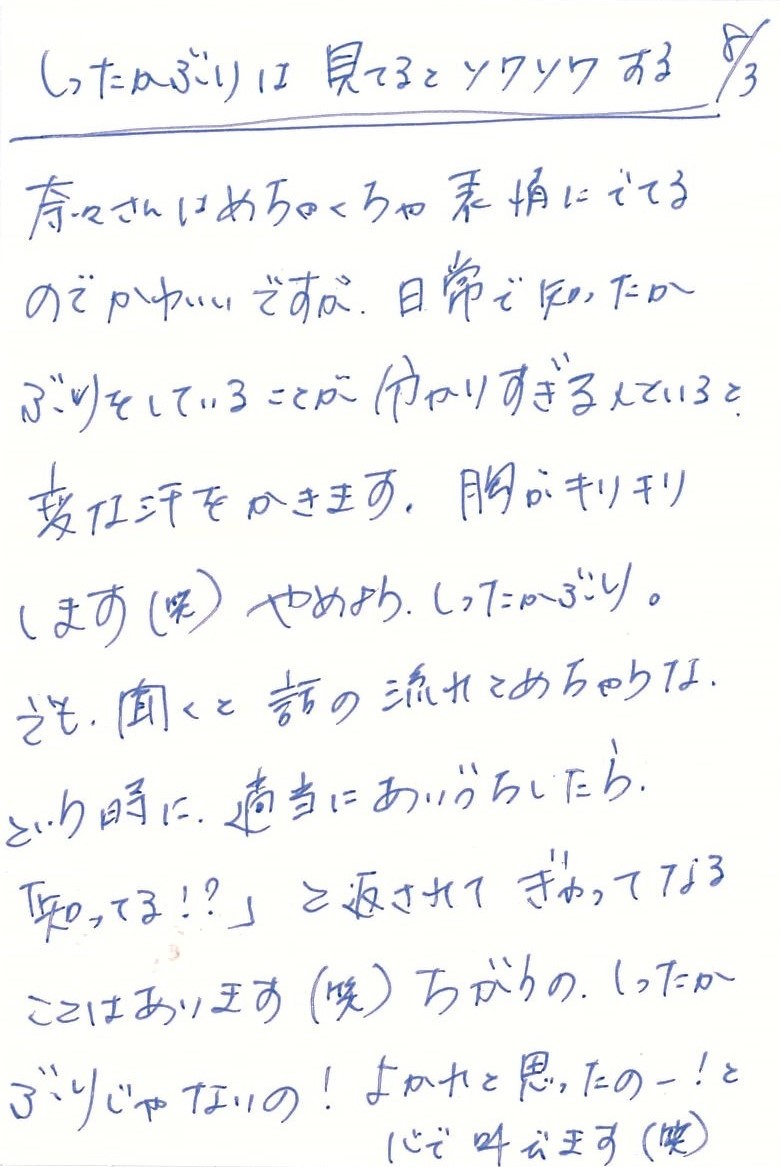 しったかぶりは見てるとソワソワする 8/3
奈々さんはめちゃくちゃ表情にでてる
のでかわいいですが、日常で知ったか
ぶりをしていることが分かりすぎる人ていると、
変な汗をかきます。胸がキリキリ
します(笑)やめよう、しったかぶり。
でも、聞くと話の流れとめちゃうな、
という時に、適当にあいづちしたら、
「知ってる!?」と返されてぎゃってなる
ことはあります(笑)ちがうの、しったか
ぶりじゃないの!よかれと思ったのー!と
心で叫びます(笑)